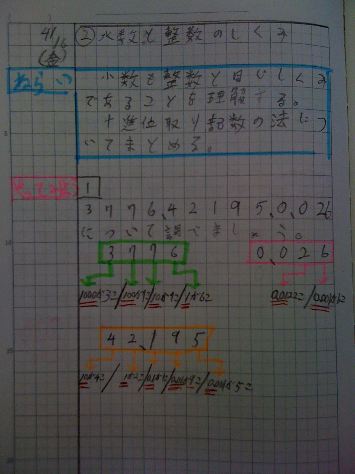 4/16
(金)
② 小数と整数のしくみ
ねらい
小数も整数と同じしくみ
であることを理解する。
十進位取り記数の法につ
いてまとめる。
1
3776、42.195、0.026
について調べましょう。
3776
0.026
1000が3こ/100が7こ/10が7こ/1が6こ
0.01が2こ/0.001が6こ
42.195
10が4こ/1が2こ/0.1が1こ/0.01が9こ/0.001が5こ